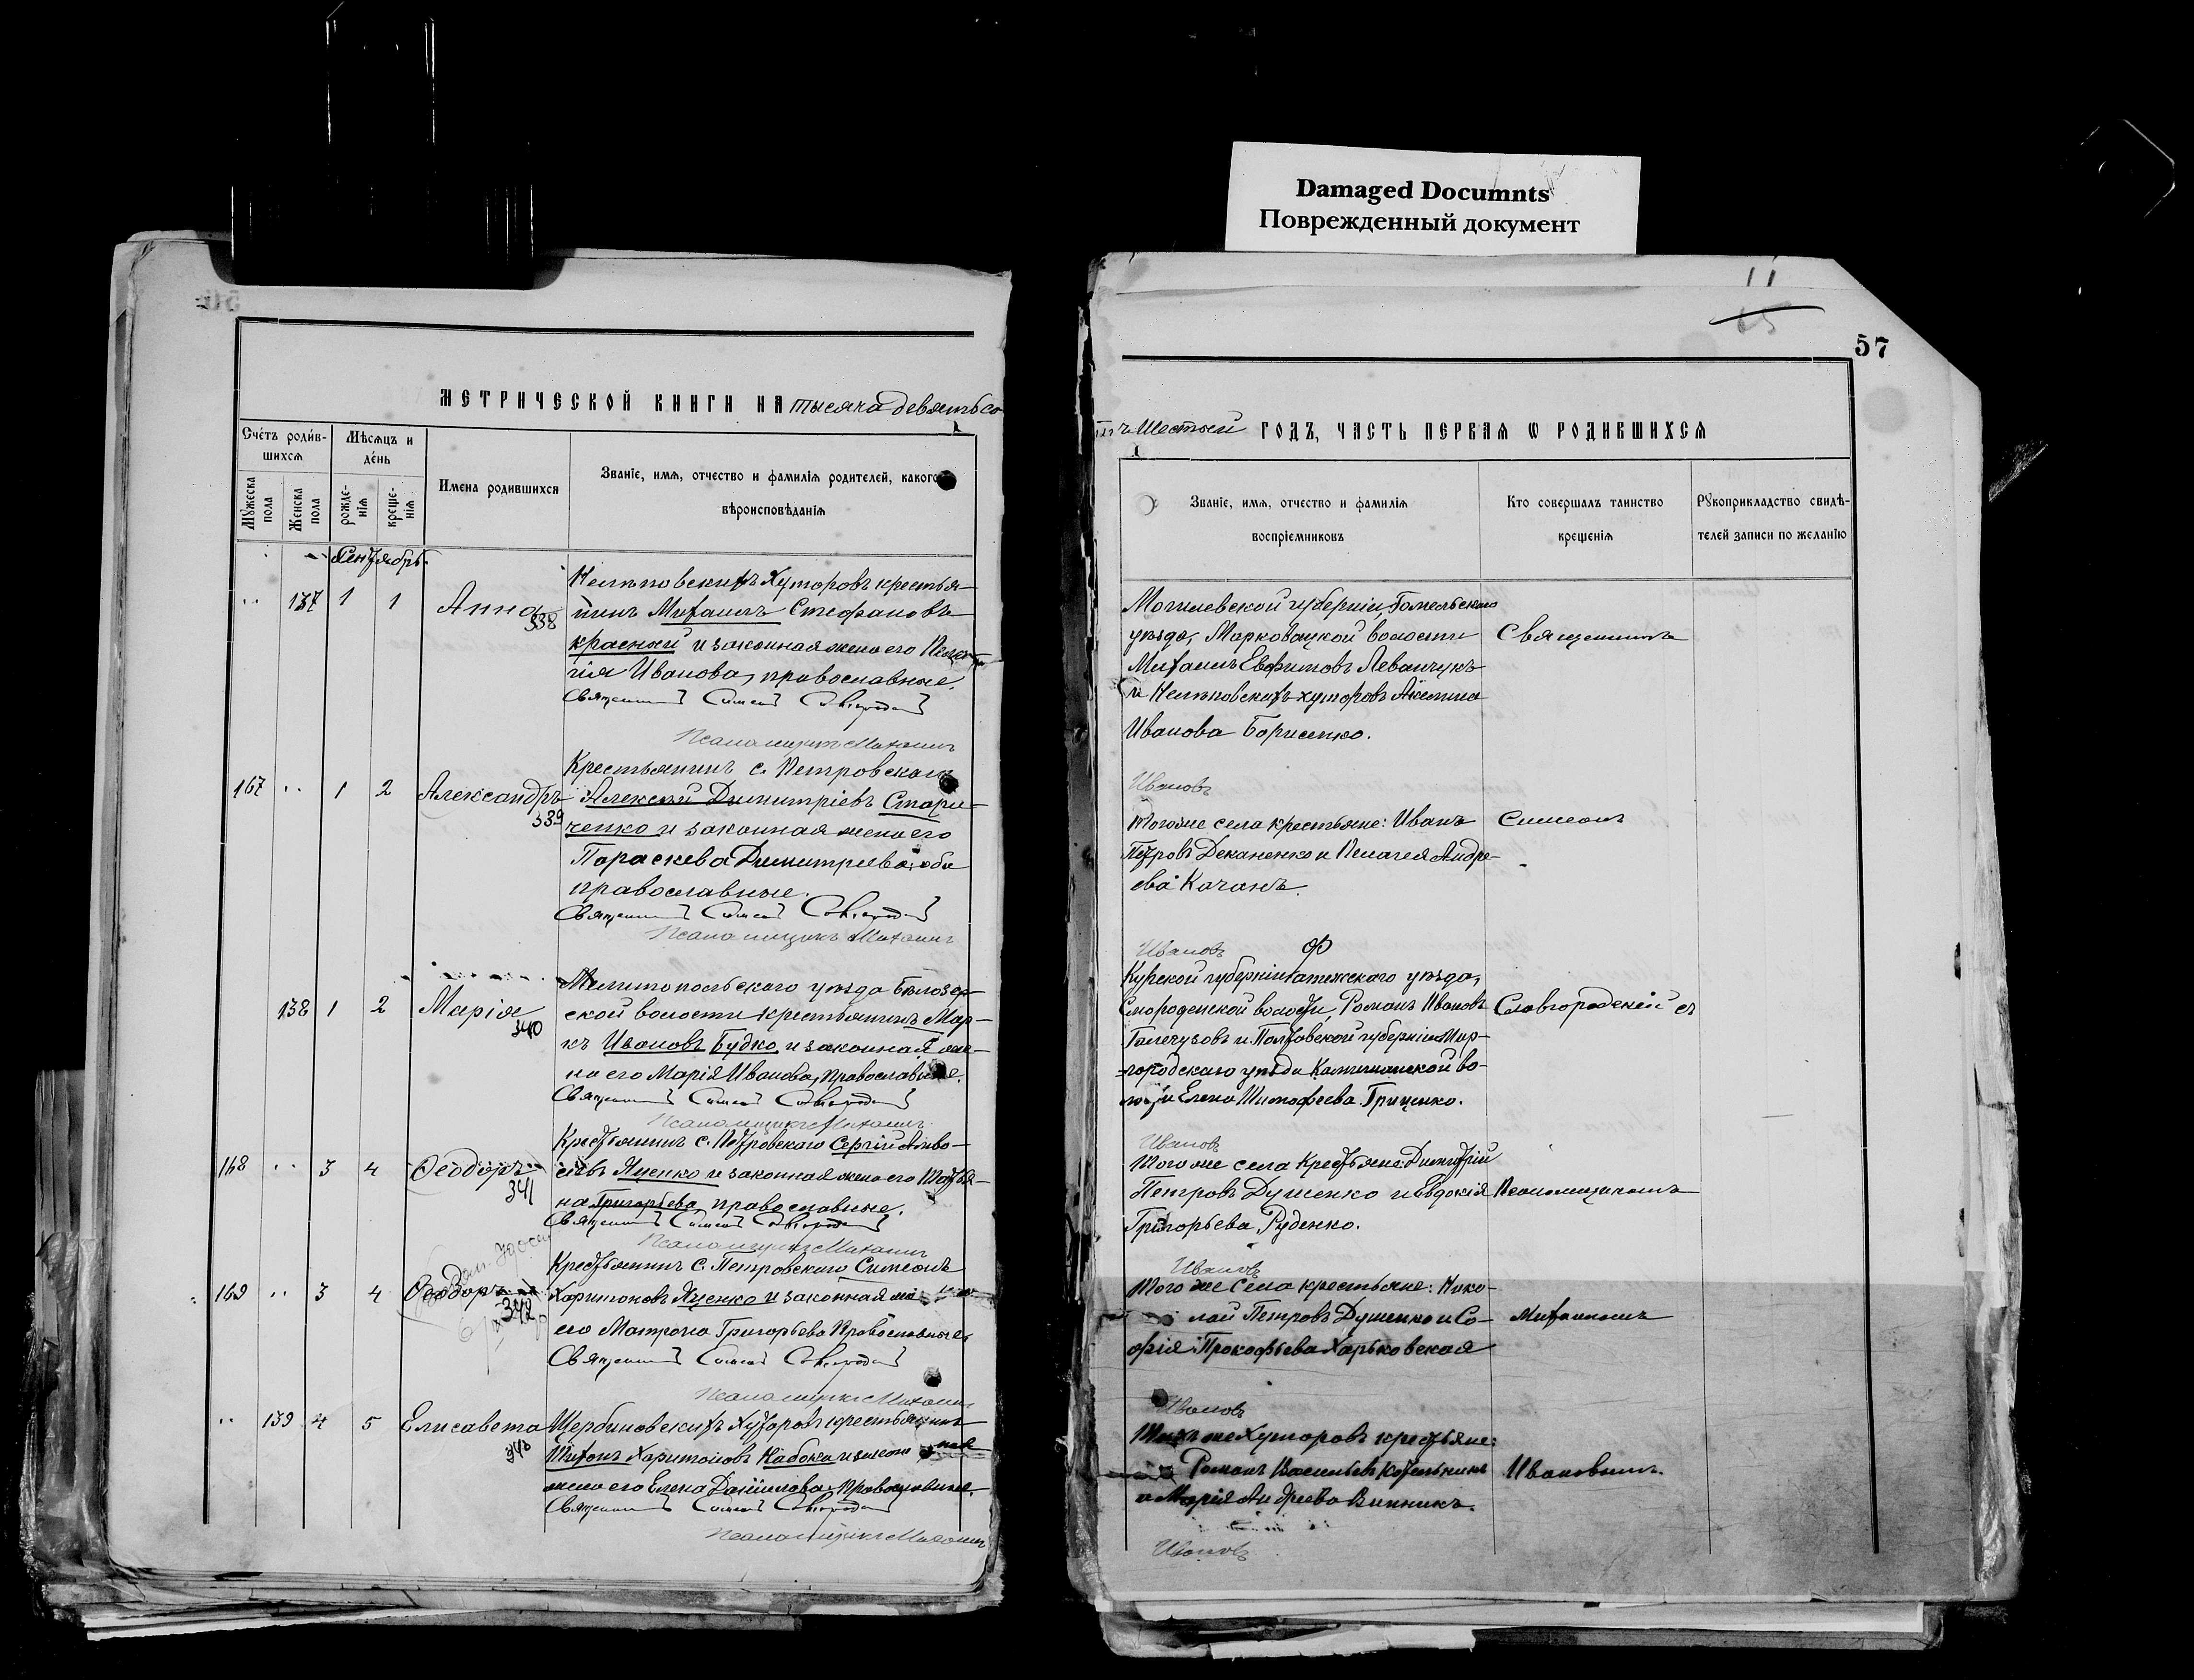 Damaged Documnts
Поврежденный документ
11
57
МЕТРИЧЕСКОЙ КНИГИ НА тысяча девятьсо
Счéтъ роди́в-
шихсѧ
Мѣсѧцъ и
де́нь
Мꙋжеска
пола
Женска
пола
рожде-
нїѧ
креще-
нїѧ
Имена родившихся
Званїе, имѧ, отчество и фамилїѧ родителей, какого
вѣроисповѣданїѧ
Сентябрь
137 1 1 Анна
338
хуторовъ крестья-
нинъ Михаилъ Стефановъ
красный и законная жена его Пела-
гія Иванова, православные.
Священникъ Симеонъ
Псаломщикъ Михаилъ
167 1 2 Александръ
339
Крестьянинъ с. Петровскаго
Алексѣй Димитріевъ Стари-
ченко и законная жена его
Параскева Димитріева, оба
православные.
Священникъ Симеонъ
Псаломщикъ Михаилъ
138 1 2 Марія
340
Мелитопольскаго уѣзда Бѣлозер-
ской волости крестьянинъ Мар-
къ Ивановъ Будко и законная же-
на его Марія Иванова, православные.
Священникъ Симеонъ
Псаломщикъ Михаилъ
168 3 4 Ѳеодоръ
341
Крестьянинъ с. Петровскаго Сергій
Яценко и законная жена его Татья-
на Григорьева, православные.
Священникъ Симеонъ
Псаломщикъ Михаилъ
169 3 4 Ѳеодоръ
342
Крестьянинъ с. Петровскаго Симеонъ
Харитоновъ Яценко и законная
его Матрона Григорьева православные.
Священникъ Симеонъ
Псаломщикъ Михаилъ
139 4 5 Елисавета
343
Щербиновскихъ хуторовъ крестьянинъ
Тихонъ Харитоновъ Кабака и
жена его Елена Даніилова, православные.
Священникъ Симеонъ
Псаломщикъ Михаилъ
Шестый ГОДЪ, ЧАСТЬ ПЕРВАЯ Ѡ РОДИВШИХСЯ
Званїе, имѧ, отчество и фамилїѧ
воспрїемниковъ
Кто совершалъ таинство
крещенїѧ
Рꙋкоприкладство свидѣ-
телей записи по желанїю
Могилевской губерніи, Гомельскаго
уѣзда, Марковацкой волости
Михаилъ Евфимовъ Леванчукъ
хуторовъ Акилина
Иванова Борисенко.
Священникъ
Ивановъ
Того же села крестьяне: Иванъ
Петровъ Деканенко и Пелагея Андре-
ева Качанъ.
Симеонъ
Ивановъ
Ф
Курской губерніи Фатежскаго уѣзда,
Смороденской волости, Романъ Ивановъ
и Полтавской губерніи Мир-
городскаго уѣзда во-
лости Елена Тимофеева Гриценко.
Славгородскій съ
Ивановъ
Того же села крестьяне: Димитрій
Петровъ Душенко и Евдокія
Григорьева Руденко.
Псаломщикомъ
Ивановъ
Того же села крестьяне: Нико-
лай Петровъ Душенко и Со-
фія Прокофьева Харьковская
Михаиломъ
Ивановъ
Тѣхъ же хуторовъ крестьяне:
Романъ Васильевъ Котельникъ
и Марія Андреева Винникъ.
Ивановымъ.
Ивановъ